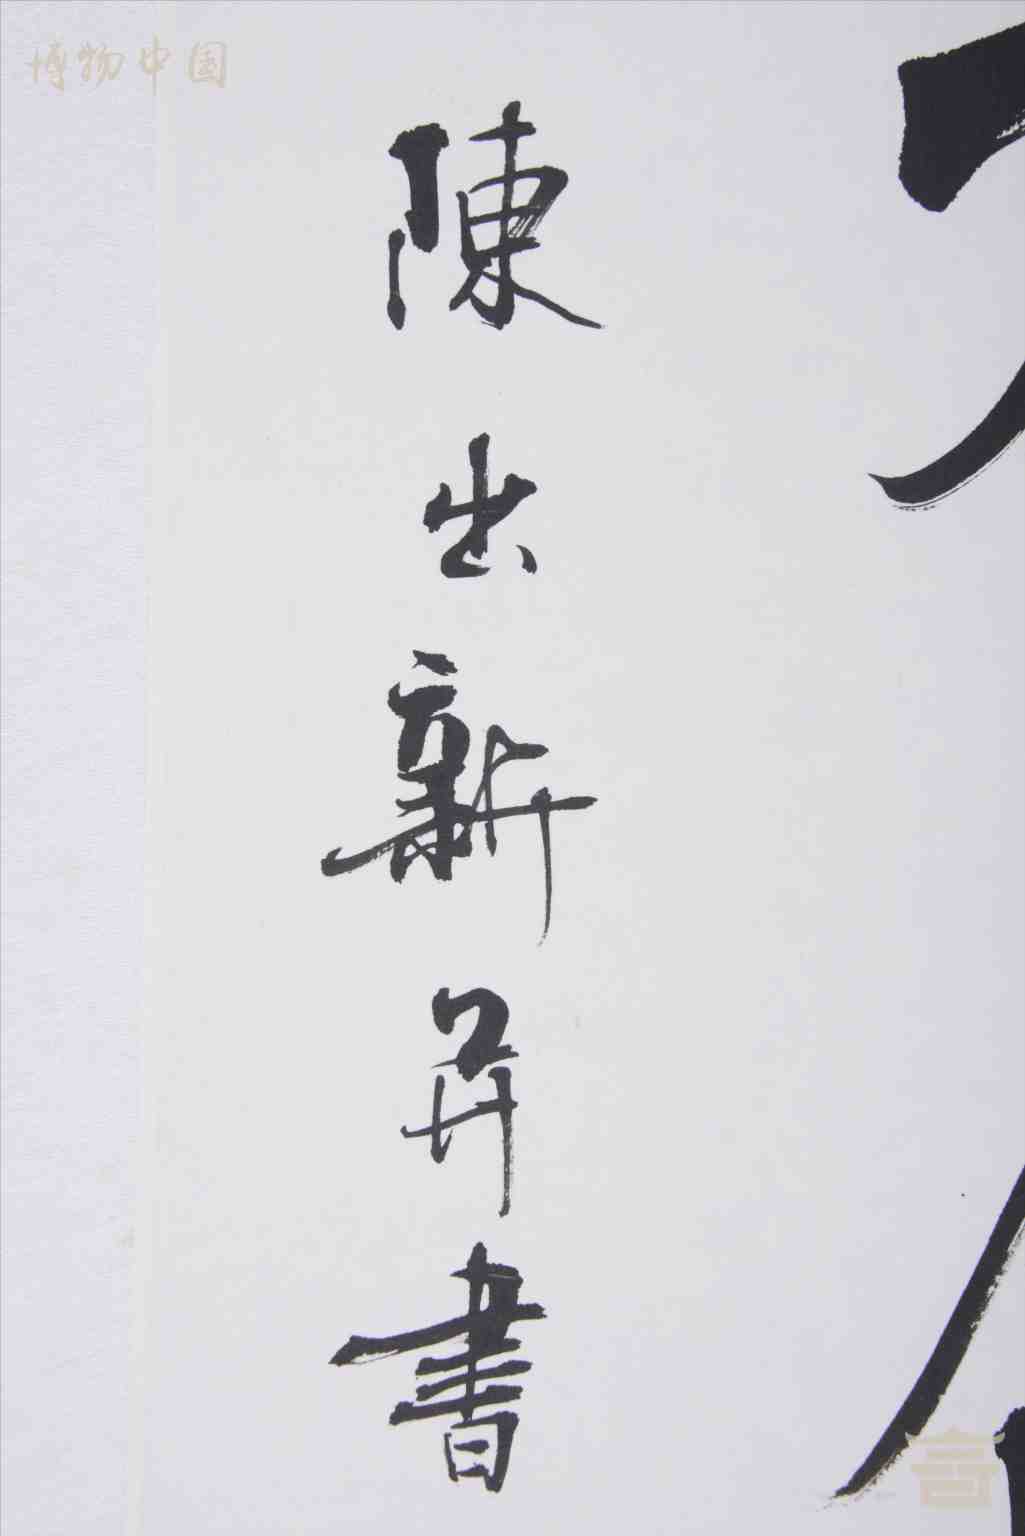 博物中国
陳出新弁書